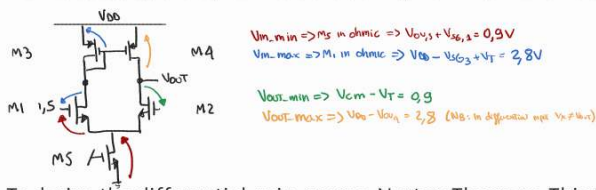 VDD
M3
M4
VOUT
M1 1,5
M2
M5
Vin_min => M5 in ohmic => Vov,5 + VSG,1 = 0,9V
Vin_max => M1 in ohmic => VDD - VSG3 + VT = 2,8V
VOUT_min => Vcm - VT = 0,9
VOUT_max => VDD - Vov4 = 2,8 (NB: in differential